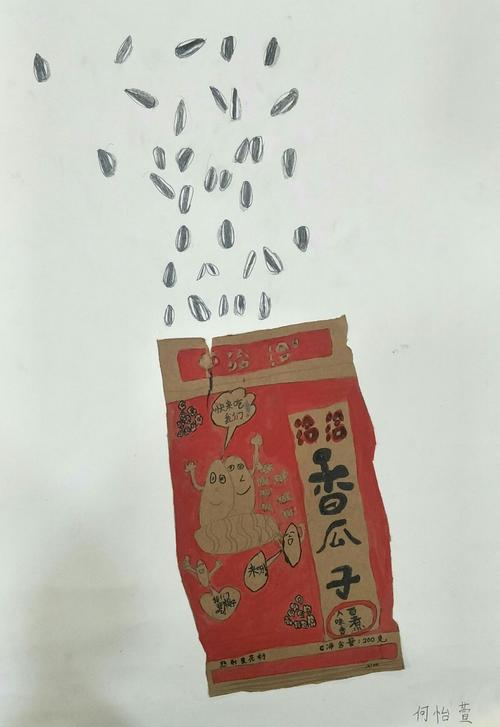 洽洽
快来吃
我们
洽洽
香瓜子
来啊
我们
入味香
百煮
净含量:200克
何怡萱